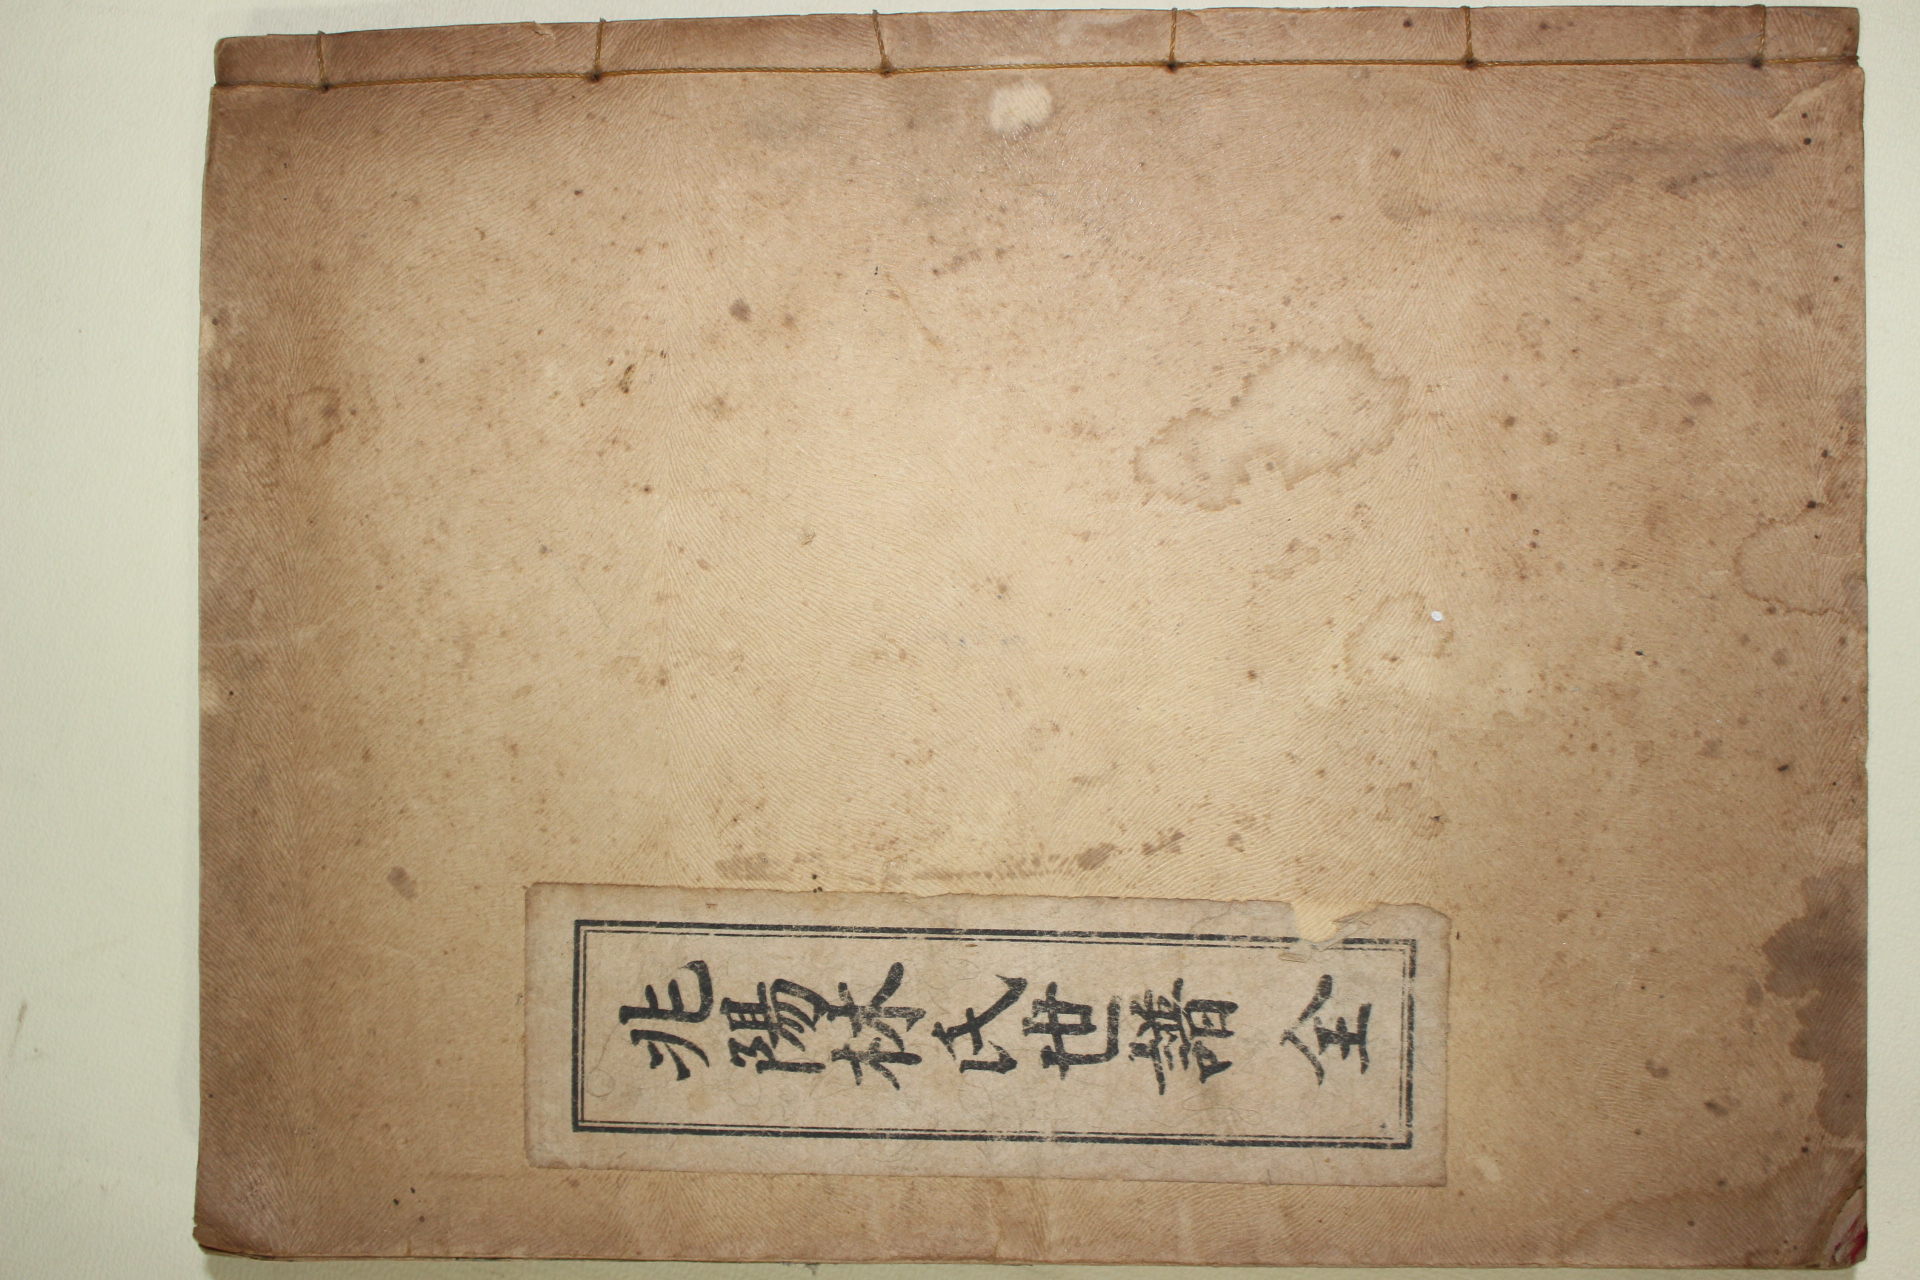 兆陽林氏世譜 全